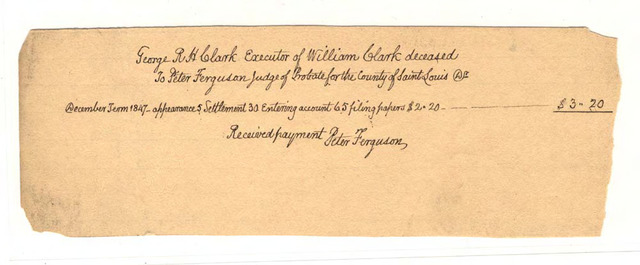 George R H Clark Executor of William Clark deceased
To Peter Ferguson Judge of Probate for the County of Saint Louis Dr
December Term 1847 - appearance 5 Settlement 30 Entering account 65 filing papers $2.20 - $3-20
Received payment Peter Ferguson